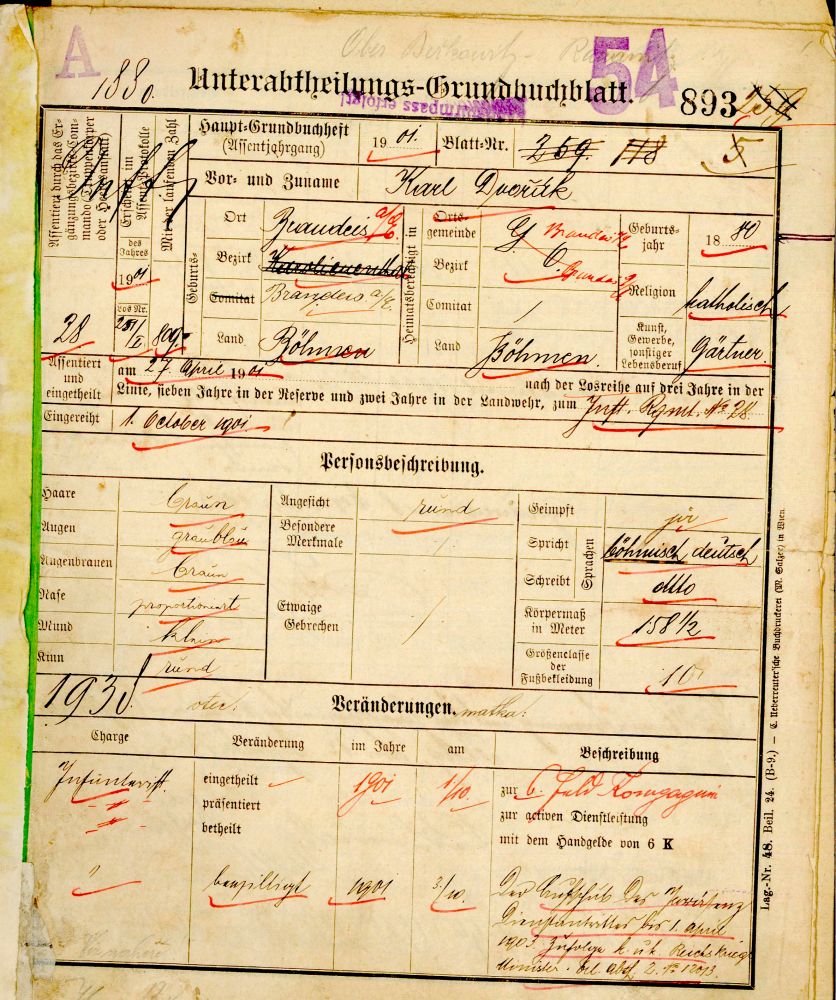 A
54
1880.
Unterabtheilungs-Grundbuchblatt.
893
Assentiert durch das Ergänzungsbezirks-Commando (Truppenkörper oder Heeresanstalt)
28
Erscheint im Assent-Protokolle
des Jahres
1901
Los Nr.
Mit der laufenden Zahl
809
Haupt-Grundbuchheft
(Assentjahrgang)
1901.
Blatt-Nr.
259.
118
5
Vor- und Zuname
Karl Dvořák
Geburts-
Ort
Brandeis a/E.
Bezirk
Karolinenthal
Comitat
Brandeis a/E.
Land
Böhmen
Heimatsberechtigt in
Ortsgemeinde
Brandeis a/E
Bezirk
Comitat
/
Land
Böhmen.
Geburtsjahr
1880
Religion
katholisch
Kunst, Gewerbe, sonstiger Lebensberuf
Gärtner.
Assentiert und eingetheilt
am 27. April 1901
nach der Losreihe auf drei Jahre in der
Linie, sieben Jahre in der Reserve und zwei Jahre in der Landwehr, zum Inft. Rgmt. № 28.
Eingereiht
1. October 1901.
Personsbeschreibung.
Haare
braun
Augen
graublau
Augenbrauen
braun
Nase
proportioniert
Mund
klein
Kinn
rund
Angesicht
rund
Besondere Merkmale
/
Etwaige Gebrechen
/
Geimpft
ja
Sprachen
Spricht
böhmisch deutsch
Schreibt
dtto
Körpermaß in Meter
158 1/2
Größenclasse der Fußbekleidung
10
1938.
otec:
Veränderungen.
matka:
Charge
Veränderung
im Jahre
am
Beschreibung
Infanterist.
eingetheilt
1901
1/10.
zur 6. Feld Kompagnie
präsentiert
zur activen Dienstleistung
betheilt
mit dem Handgelde von 6 K
"
bewilligt
1901
3/10.
Der Aufschub des Präsenz
Dienstantrittes bis 1. April
1903 zufolge k. u. k. Reichskriegs
Minister.
Lag.-Nr. 48. Beil. 24. (B-9.) — C. Ueberreuter'sche Buchdruckerei (M. Salzer) in Wien.